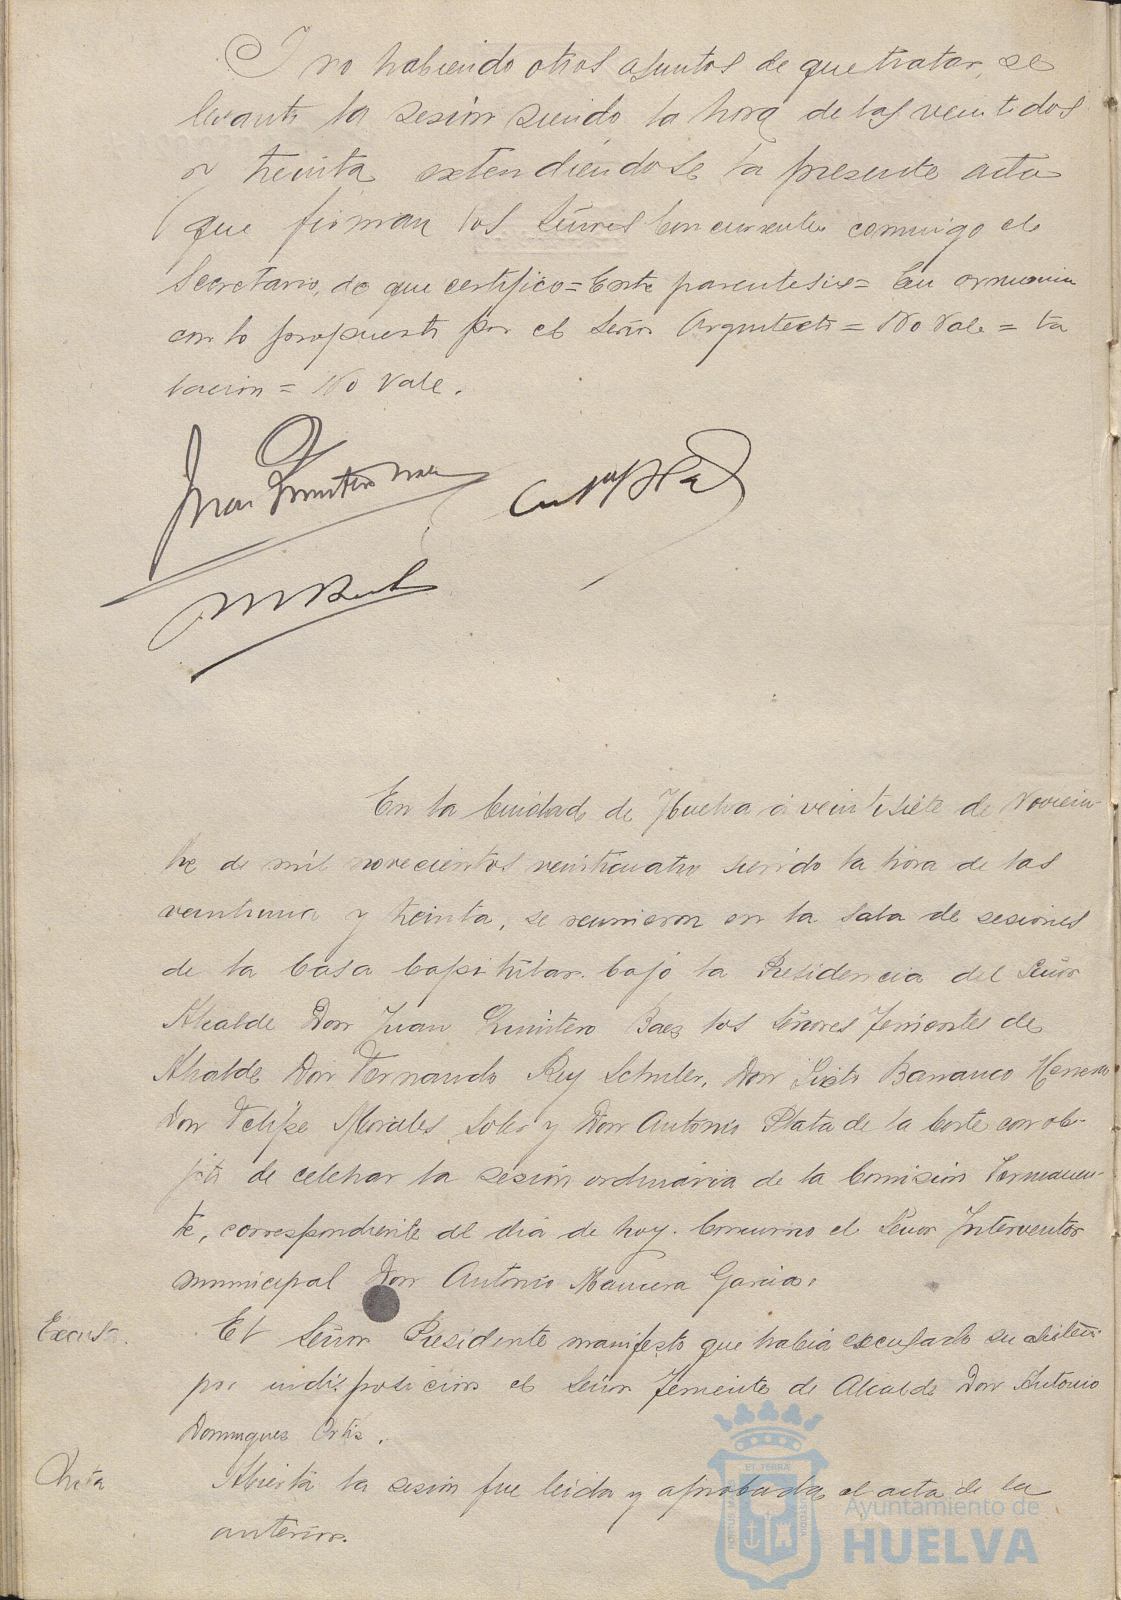 Y no habiendo otros asuntos de que tratar, se
levantó la sesión siendo la hora de las veintidos
y treinta extendiéndose la presente acta
que firman los Señores Concurrentes conmigo el
Secretario, de que certifico = Entre parentesis = En armonia
con lo propuesto por el Señor Arquitecto = No Vale = ta
lacion = No Vale.
Juan Quintero Baez
En la Ciudad de Huelva á veintisiete de Noviem-
bre de mil novecientos veinticuatro siendo la hora de las
veintiuna y treinta, se reunieron en la Sala de sesiones
de la Casa Capitular bajo la Presidencia del Señor
Alcalde Don Juan Quintero Baez los Señores Tenientes de
Alcalde Don Fernando Rey Schuler, Don Sixto Barranco Herrero
Don Felipe Morales Soler y Don Antonio Plata de la Corte con ob-
jeto de celebrar la sesión ordinaria de la Comisión Permanen-
te, correspondiente al dia de hoy. Concurrio el Señor Interventor
municipal Don Antonio Mancera Garcia.
Excusa. El Señor Presidente manifestó que habia excusado su asisten
por indisposición el Señor Teniente de Alcalde Don Antonio
Dominguez Ortiz.
Acta Abierta la sesión fue leida y aprobada el acta de la
anterior.
ET TERRÆ
PORTUS MARIS
CUSTODIA
Ayuntamiento de
HUELVA